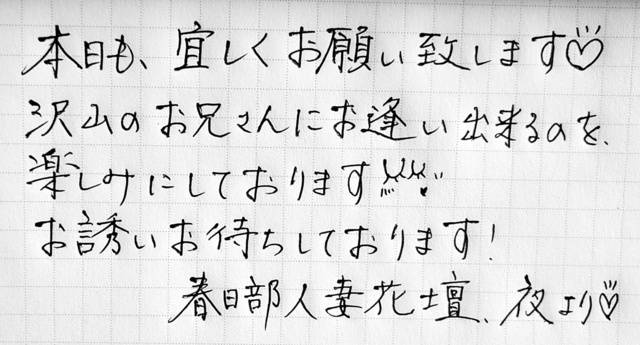 本日も、宜しくお願い致します♡
沢山のお兄さんにお逢い出来るのを、
楽しみにしております
お誘いお待ちしております!
春日部人妻花壇、夜より♡